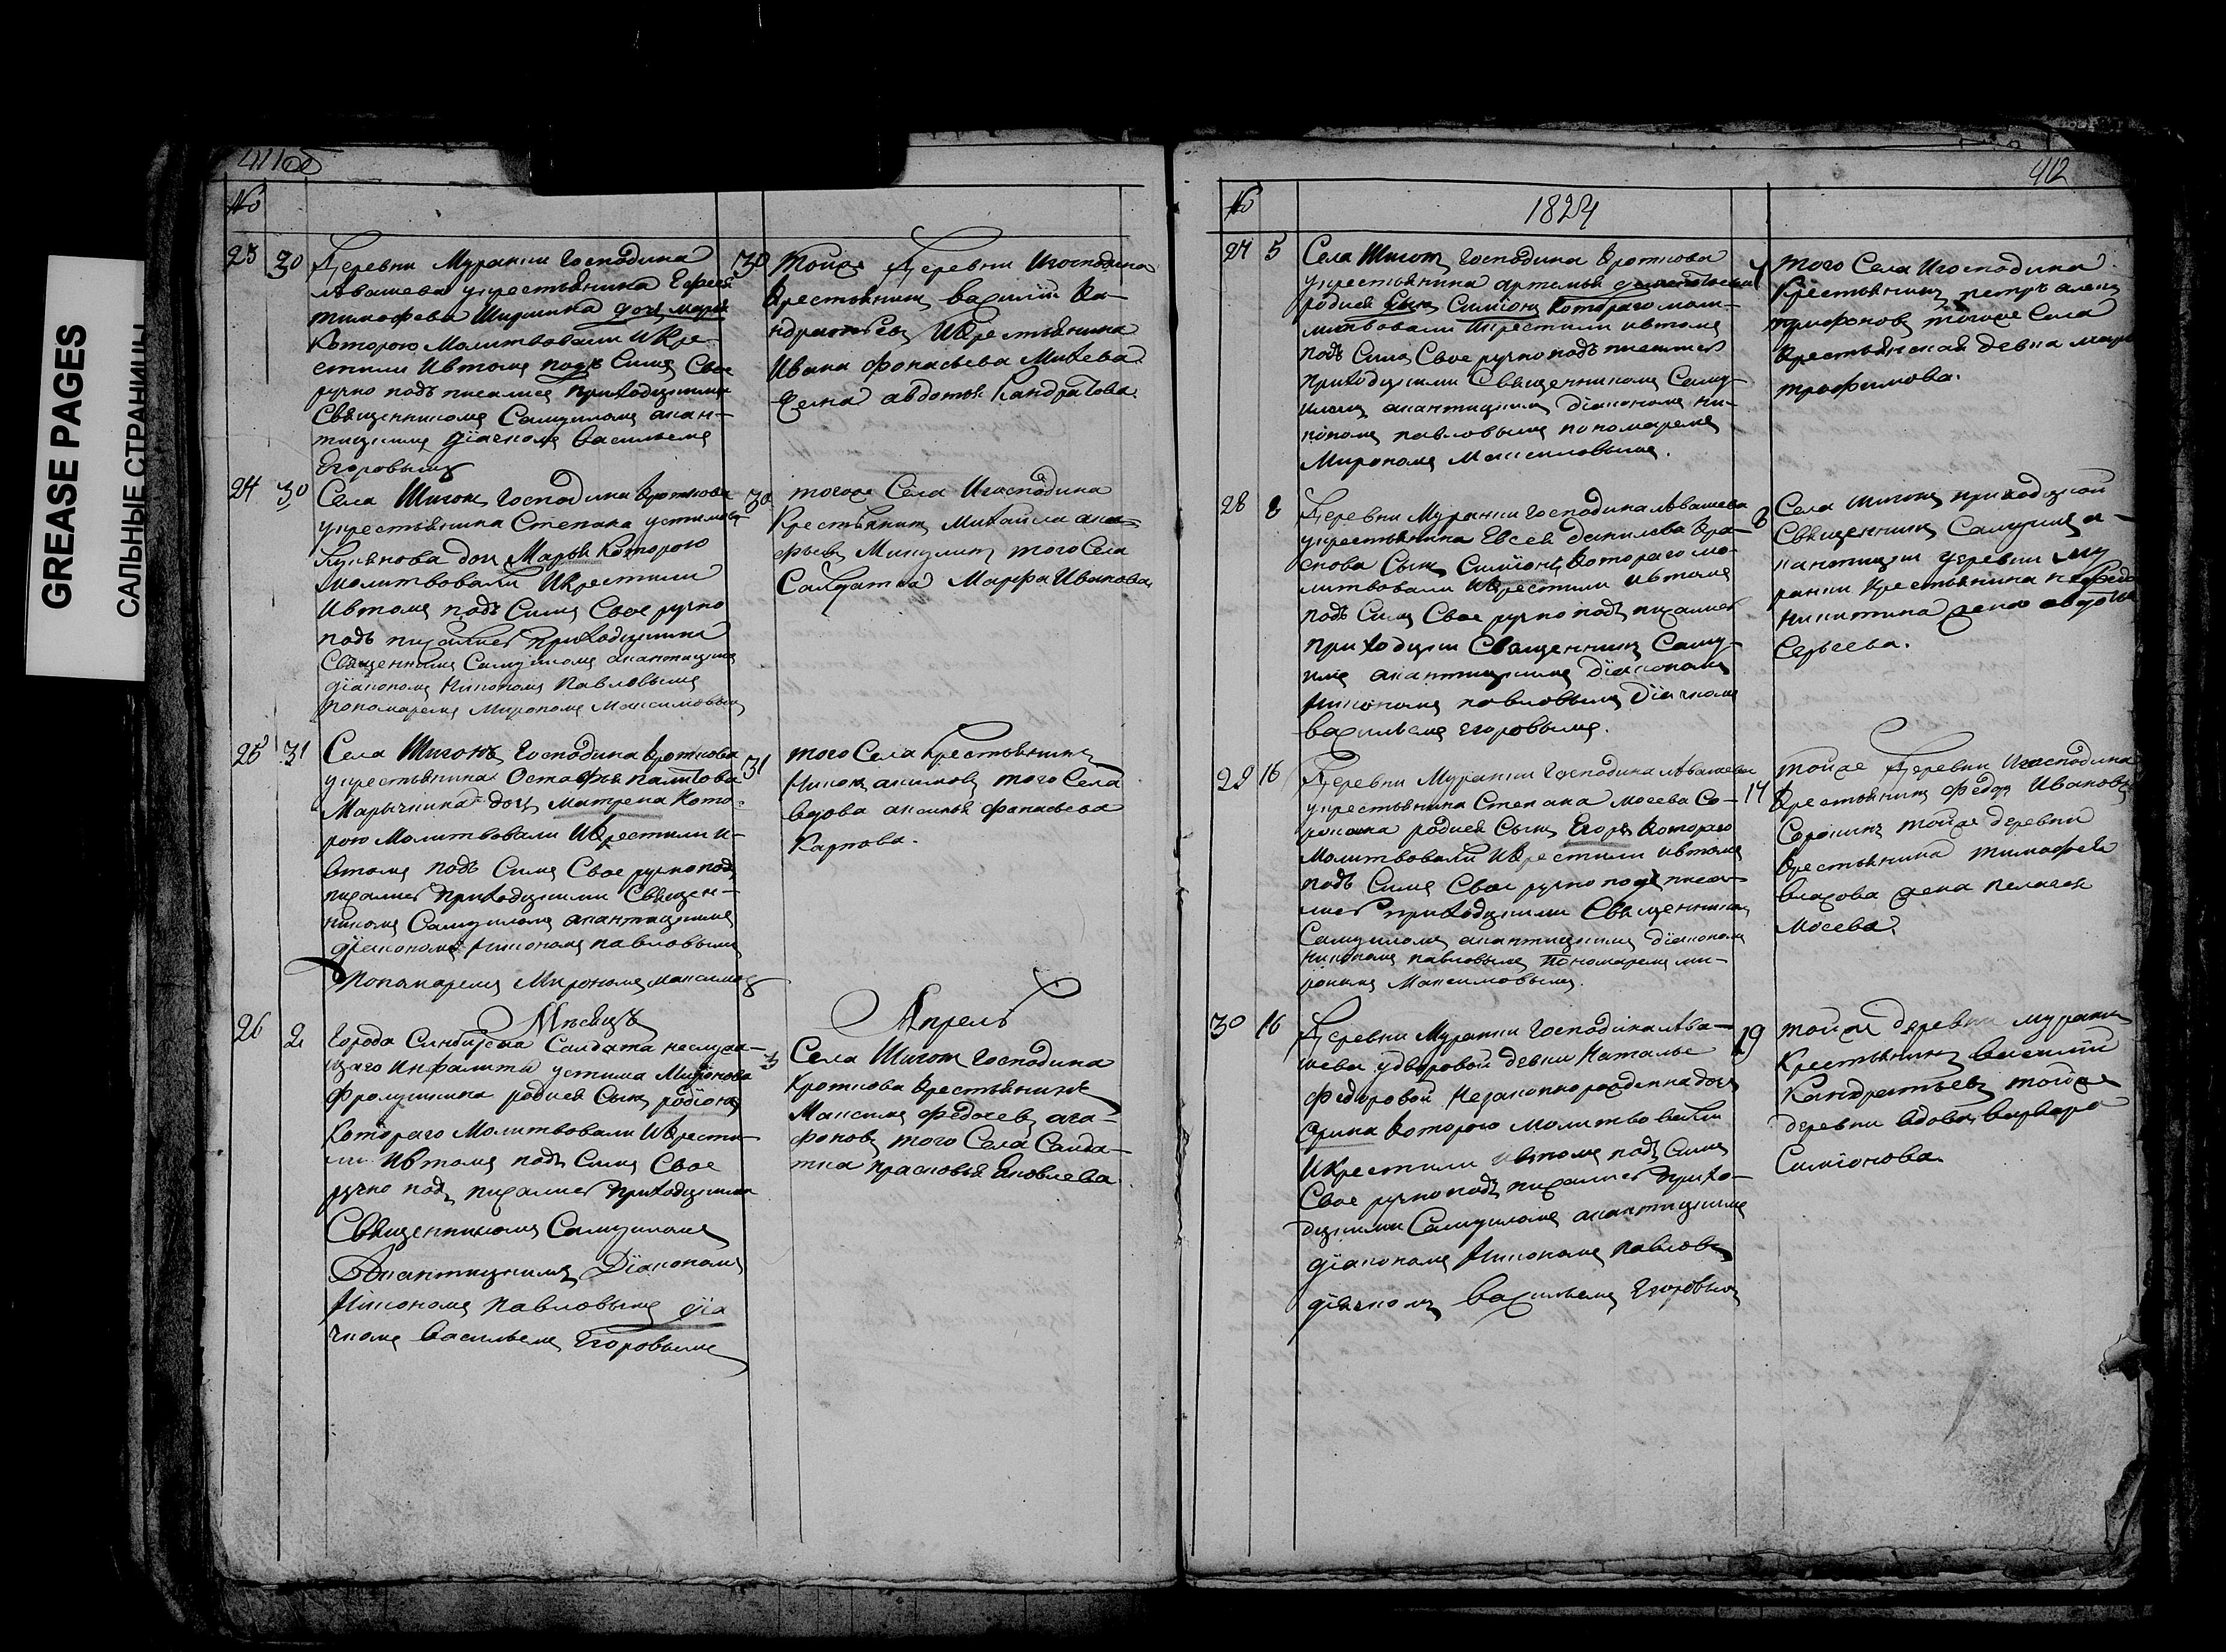 GREASE PAGES
САЛЬНЫЕ СТРАНИЦЫ
411об
№
23 30 Деревни Муранки Господина
Ивашева у крестьянина Ефрея
тимофеева Ширшина дочь марья
Которою Молитвовали И Кре-
стили И втомъ подъ Симъ Свое
ручно подъ писались приходскими
Священникомъ Самуиломъ акан-
тицкимъ Діячкомъ Васильемъ
Егоровымъ
30 тойже Деревни И господина
Крестьянинъ Василій Ка-
ндратьевъ И Крестьянина
Ивана фонасьева Михева
жена авдотья Кандратова.
24 30 Села Шигонъ Господина Кроткова
у крестьянина Степана устимова
дочь Марья Которою
молитвовали И крестили
И втомъ подъ Симъ Свое ручно
подъ писались приходскими
Священникомъ Самуиломъ акантицкимъ
діакономъ Никономъ Павловымъ
пономаремъ Мирономъ Максимовымъ
30 тогоже Села И господина
Крестьянинъ Михайла ага-
фьевъ Микулинъ того Села
Салдатка Марфа Иванова
25 31 Села Шигонъ Господина Кроткова
у крестьянина Остафья
Марычкина дочь матрена Кото-
рою Молитвовали И Крестили и-
втомъ подъ Симъ Свое ручно подъ
писались приходскими Священ-
никомъ Самуиломъ акантицкимъ
діакономъ Никономъ павловымъ
Пономаремъ Мирономъ максимов
31 того Села Крестьянинъ
Никонъ акимовъ того Села
вдова аксинья фанасьева
Карпова.
Мѣсяцъ Апрель
26 2 Города Синбирска Салдата неслужа-
щаго Инфалита устима
Фролушкина родился Сынъ родіонъ
Котораго Молитвовали И Крести-
ли Ивтомъ подъ Симъ Свое
ручно подъ писались приходскими
Священникомъ Самуиломъ
Акантицкимъ Діакономъ
Никономъ Павловымъ дія
чкомъ Васильемъ Егоровымъ
3 Села Шигонъ Господина
Кроткова Крестьянинъ
Максимъ Федосеевъ ага-
фоновъ того Села Салда-
тка прасковья Яковлева.
412
№
1824
27 5 Села Шигонъ Господина Кроткова
у крестьянина артемья
родился Сынъ Симіонъ Котораго моли-
митвовали И крестили ивтомъ
подъ Симъ Свое ручно подъ писались
приходскими Священникомъ Саму-
иломъ акантицкимъ діакономъ ни-
кономъ павловымъ пономаремъ
Мирономъ Максимовымъ.
7 того Села И господина
Крестьянинъ петръ алекс
трифоновъ тогоже Села
Крестьянская девка марь
трофимова.
28 8 Деревни Муранки Господина Ивашева
у крестьянина Евсея данилова Кра-
снова Сынъ Симіонъ Котораго мо-
литвовали И Крестили ивтомъ
подъ Симъ Свое ручно подъ писались
приходскии Священникъ Саму-
илъ акантицкимъ Діакономъ
Никономъ павловымъ Діячкомъ
васильемъ егоровымъ.
8 Села шигонъ приходской
Священникъ Самуилъ а-
кантицкии деревни му
ранки Крестьянина нефеда
никитина жена авдотья
Сергеева.
29 16 Деревни Муранки Господина Ивашева
у крестьянина Степана мосева Со-
рокина родился Сынъ Егоръ Котораго
Молитвовали И Крестили ивтомъ
подъ Симъ Свое ручно подъ писа-
лись приходскими Священникомъ
Самуиломъ акантицкимъ діакономъ
никономъ павловымъ Пономаремъ ми-
рономъ Максимовымъ.
17 тойже Деревни И господина
Крестьянинъ Федоръ Ивановъ
Сорокинъ тойже деревни
Крестьянина тимофея
Власова жена пелагея
Мосева.
30 16 Деревни Муранки Господина Ива-
шева у дворовой девки Натальи
Федоровой Незаконнорожденна дочь
Арина Которою молитвовали
И Крестили ивтомъ подъ Симъ
Свое ручно подъ писались прихо-
дцкими Самуиломъ акантицкимъ
діакономъ Никономъ павловъ
діячкомъ Васильемъ Егоровымъ
19 тойже деревни муранки
Крестьянинъ Василій
Кандратьевъ тойже
деревни вдова варвара
Симіонова.